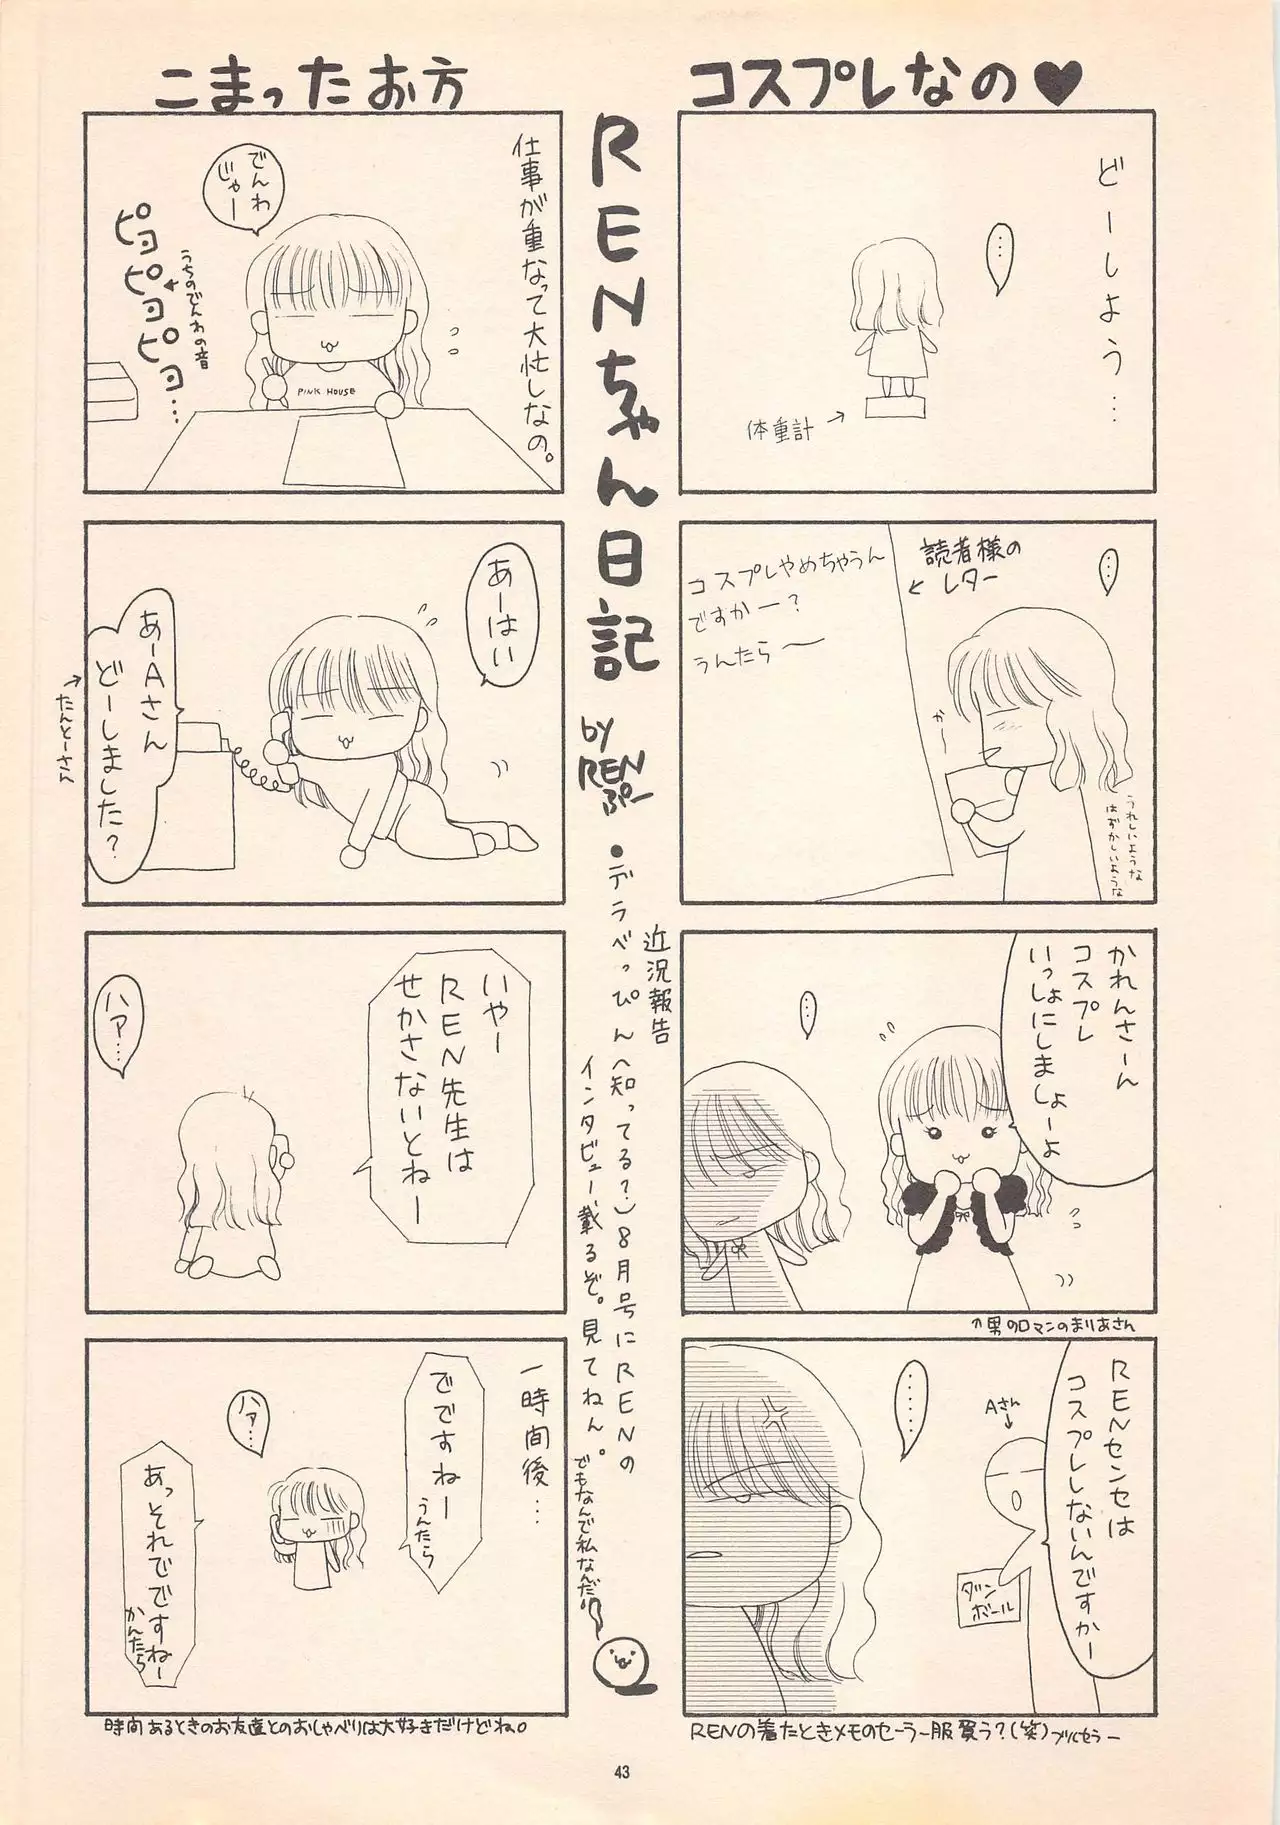 コスプレなの♥
どーしよう…
…
体重計
読者様の
レター
コスプレやめちゃうん
ですかー?
うんたら〜
…
かー
うれしいような
はずかしいような
かれんさーん
コスプレ
いっしょにしましょーよ
…
↑男のロマンのまりあさん
RENセンセは
コスプレしないんですかー
……
Aさん
ダン
ボール
RENの着たときメモのセーラー服買う?(笑)ブルセラー
RENちゃん日記
by
REN
ぷー
近況報告
●デラべっぴん(知ってる?)8月号にRENの
インタビュー載るぞ。見てねん。
でもなんで私なんだ。
こまったお方
仕事が重なって大忙しなの。
でんわ
じゃー
うちのでんわの音
ピヨ
ピヨ
ピヨ…
PINK HOUSE
あーはい
あーAさん
どーしました?
たんとーさん
いやー
REN先生は
せかさないとねー
ハァ…
一時間後…
でですねー
うんたら
ハァ…
あっそれでですねー
かんたら
時間あるときのお友達とのおしゃべりは大好きだけどね。
43